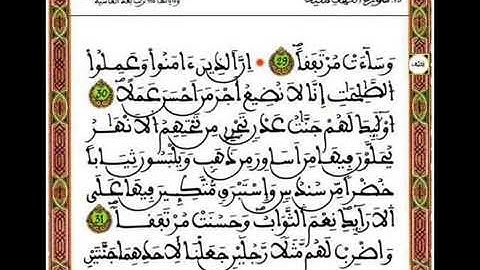 وَسَآءَتْ مُرْتَفَقاً 29 اِنَّ اَلذِينَ ءَامَنُواْ وَعَمِلُواْ
اُلصَّٰلِحَٰتِ إِنَّا لَا نُضِيعُ أَجْرَ مَنَ اَحْسَنَ عَمَلاً 30
اُوْلَٰٓئِكَ لَهُمْ جَنَّٰتُ عَدْنٍ تَجْرِے مِن تَحْتِهِمُ اُلَانْهَٰرُ
يُحَلَّوْنَ فِيهَا مِنَ اَسَاوِرَ مِن ذَهَبٍ وَيَلْبَسُونَ ثِيَاباً
خُضْراً مِّن سُندُسٍ وَإِسْتَبْرَقٍ مُّتَّكِـِٕينَ فِيهَا عَلَى
اَلَارَآئِكِ نِعْمَ اَلثَّوَابُ وَحَسُنَتْ مُرْتَفَقاً 31
وَاضْرِبْ لَهُم مَّثَلاً رَّجُلَيْنِ جَعَلْنَا لِأَحَدِهِمَا جَنَّتَيْنِ